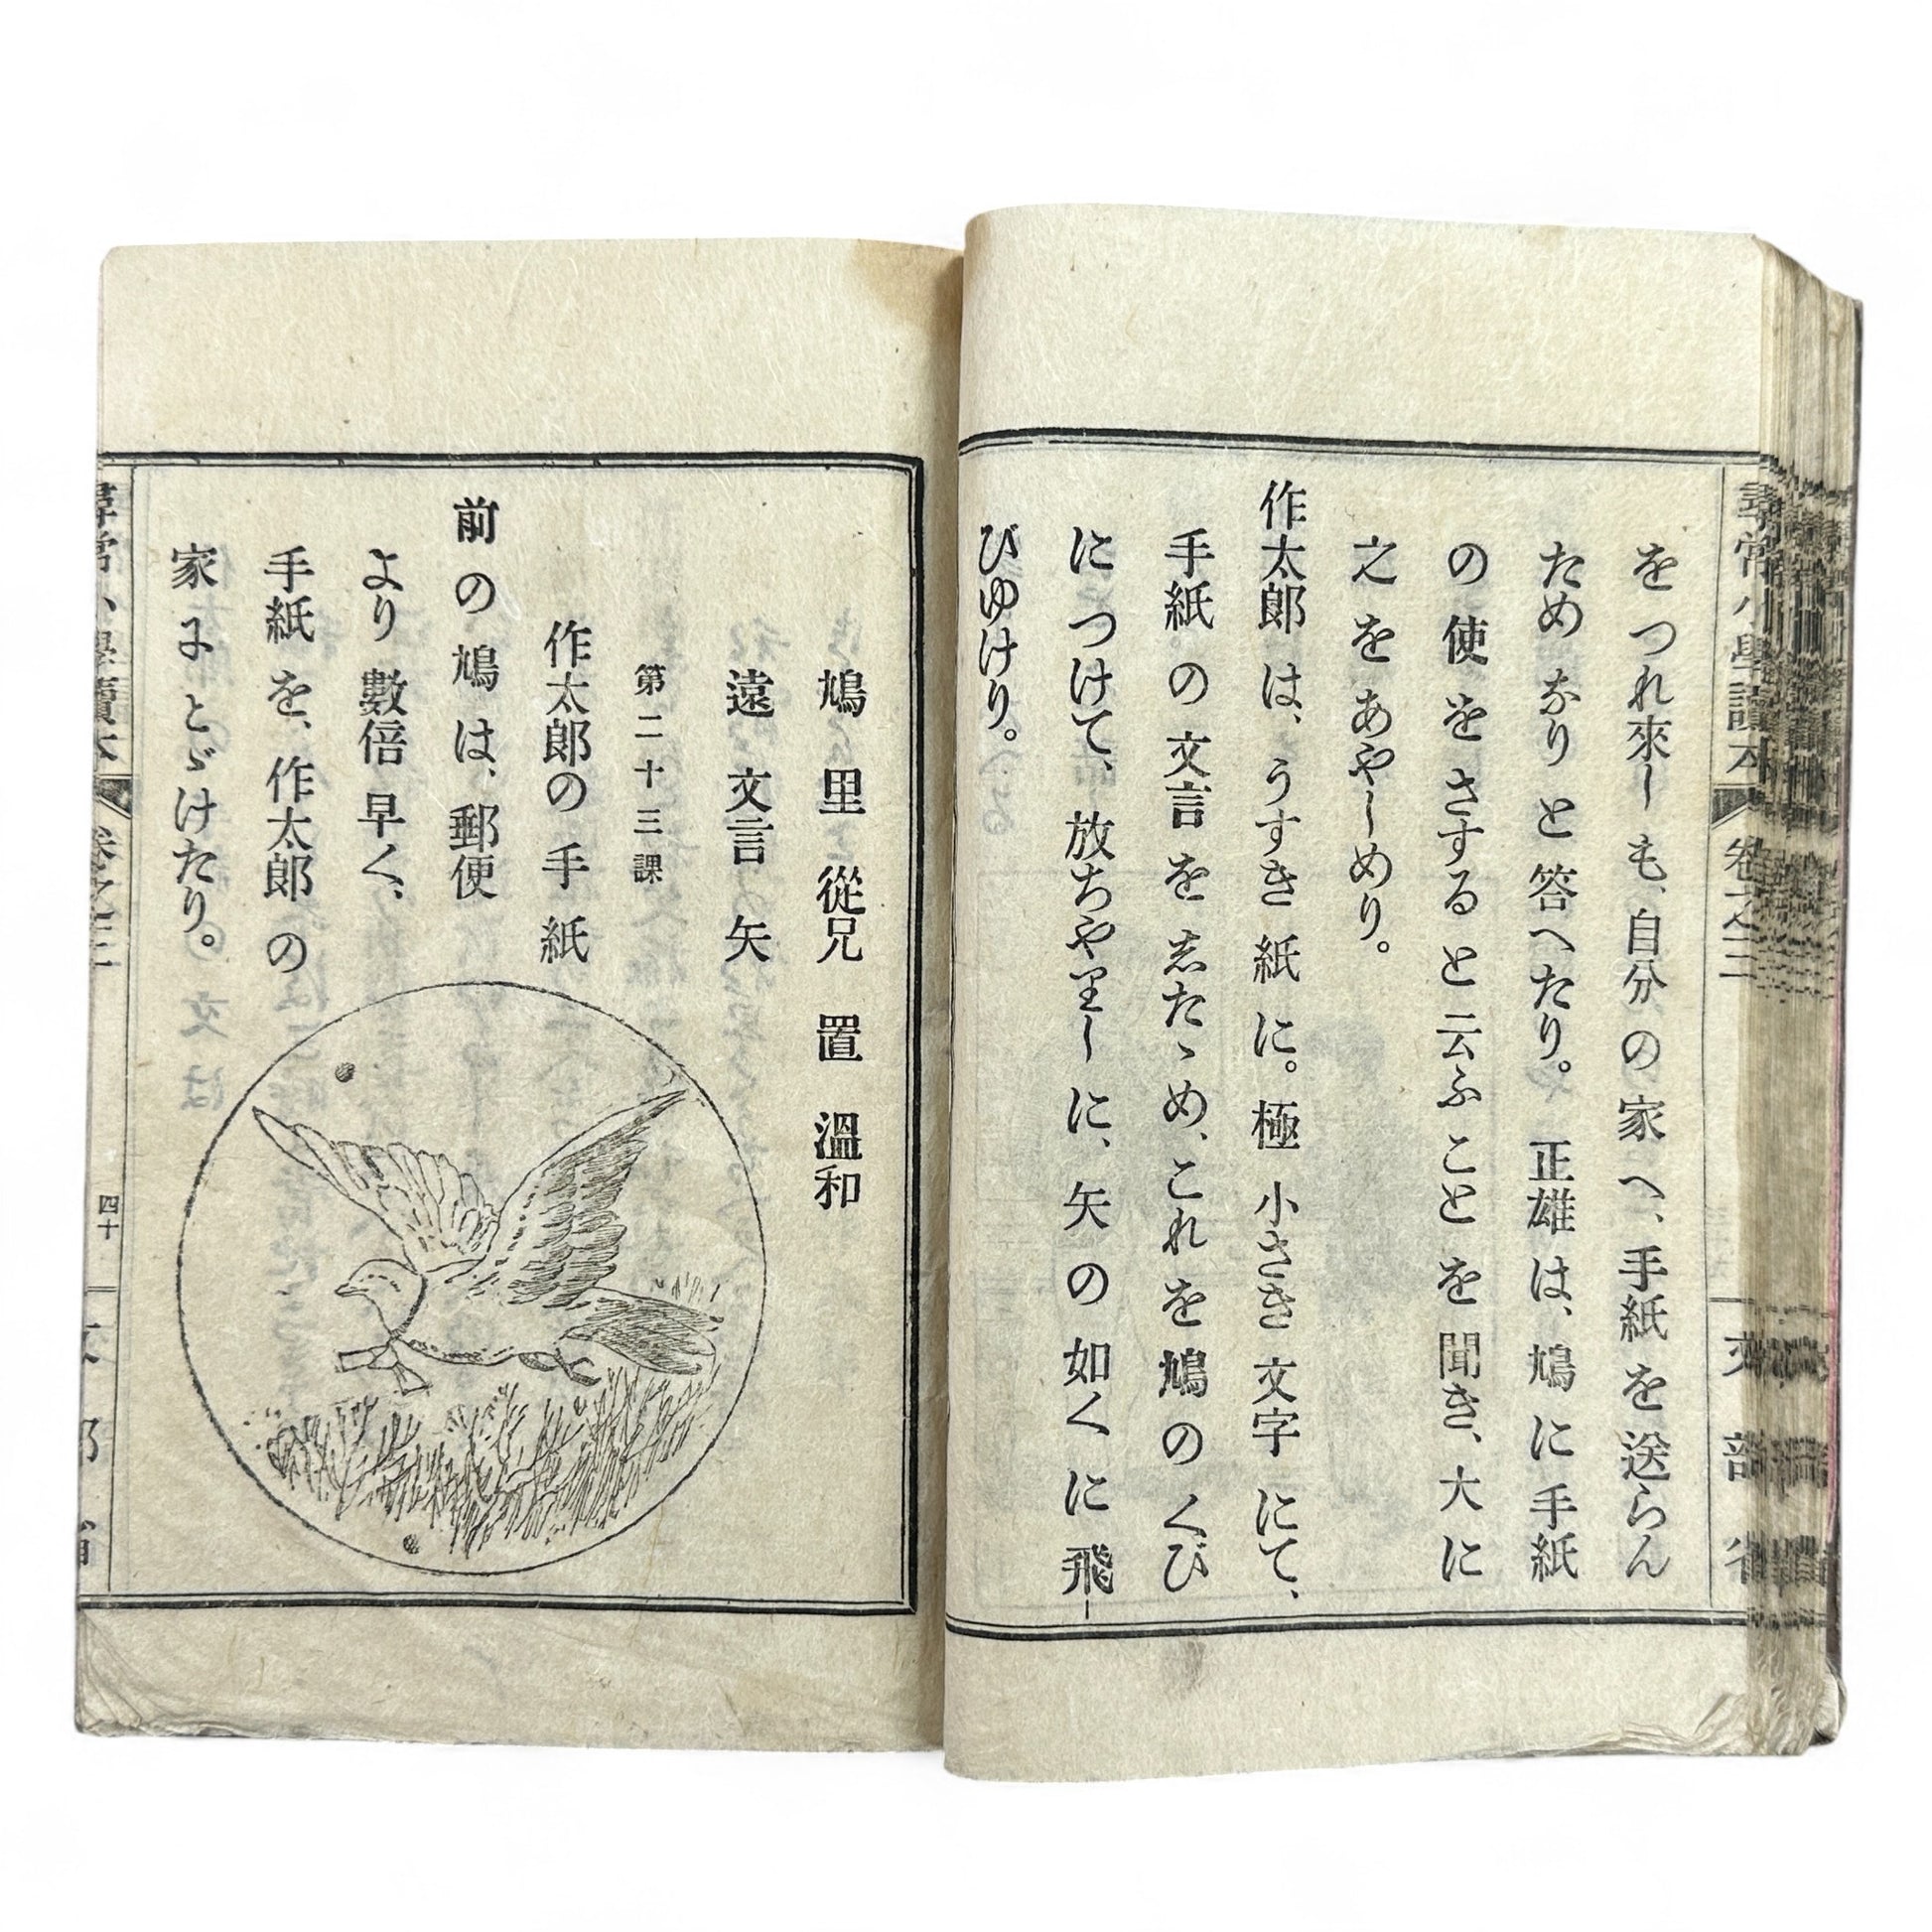 尋常小學讀本 卷之三 文部省
をつれ來しも、自分の家へ、手紙を送らん
ためなりと答へたり。正雄は、鳩に手紙
の使をさすると云ふことを聞き、大に
之をあやしめり。
作太郎は、うすき紙に。極小さき文字にて、
手紙の文言を志たゝめ、これを鳩のくび
につけて、放ちやりしに、矢の如くに飛
びゆけり。
鳩 里 從兄 置 溫和
遠 文言 矢
第二十三課
作太郎の手紙
前の鳩は、郵便
より數倍早く、
手紙を、作太郎の
家にとゞけたり。
尋常小學讀本 卷之三 四十 文部省